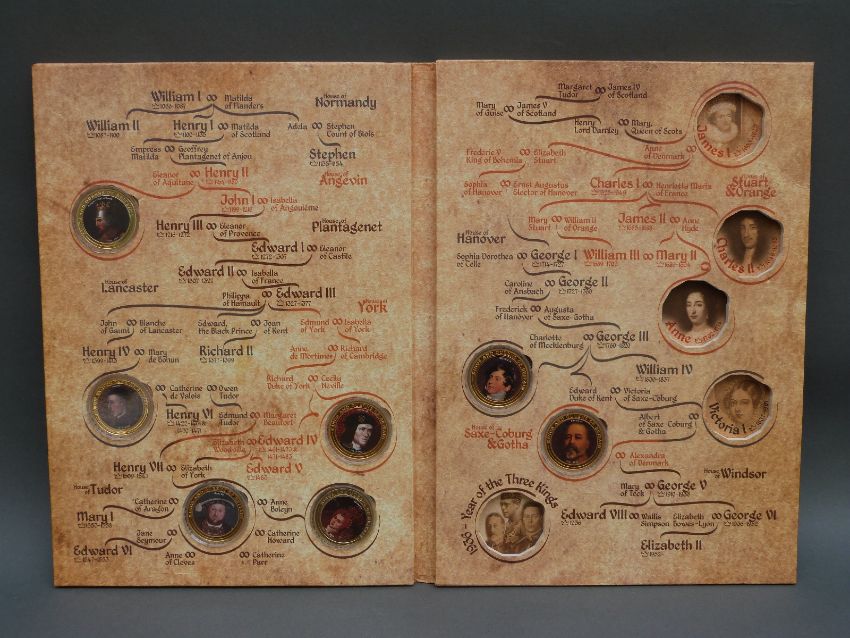 William I ∞ Matilda
1066-1087 of Flanders
House of
Normandy
William II
1087-1100
Henry I ∞ Matilda
1100-1135 of Scotland
Adela ∞ Stephen
Count of Blois
Empress ∞ Geoffrey
Matilda Plantagenet of Anjou
Stephen
1135-1154
Eleanor ∞ Henry II
of Aquitaine
House of
Angevin
John I ∞ Isabella
1199-1216 of Angoulême
Henry III ∞ Eleanor
1216-1272 of Provence
House of
Plantagenet
Edward I ∞ Eleanor
1272-1307 of Castile
Edward II ∞ Isabella
1307-1327 of France
House of
Lancaster
Philippa ∞ Edward III
of Hainault 1327-1377
House of
York
John ∞ Blanche
of Gaunt of Lancaster
Edward, ∞ Joan
the Black Prince of Kent
Edmund ∞ Isabella
of York of York
Henry IV ∞ Mary
1399-1413 de Bohun
Richard II
1377-1399
Anne ∞ Richard
de Mortimer of Cambridge
Richard ∞ Cecily
Duke of York Neville
Catherine ∞ Owen
de Valois Tudor
Henry VI
1422-1461 &
1470-1471
Edmund ∞ Margaret
Tudor Beaufort
Elizabeth ∞ Edward IV
Woodville 1461-1470 &
1471-1483
Henry VII ∞ Elizabeth
1485-1509 of York
Edward V
1483
House
of Tudor
Mary I
1553-1558
Catherine ∞
of Aragon
∞ Anne
Boleyn
Jane ∞
Seymour
∞ Catherine
Howard
Edward VI
1547-1553
Anne ∞
of Cleves
∞ Catherine
Parr
Margaret ∞ James IV
Tudor of Scotland
Mary ∞ James V
of Guise of Scotland
Henry ∞ Mary,
Lord Darnley Queen of Scots
Anne ∞
of Denmark
James I
Frederic V ∞ Elizabeth
King of Bohemia Stuart
Sophia ∞ Ernst Augustus
of Hanover Elector of Hanover
Charles I ∞ Henrietta Maria
1625-1649 of France
House of
Stuart
& Orange
Mary ∞ William II
Stuart of Orange
James II ∞ Anne
1685-1688 Hyde
Charles II
House of
Hanover
Sophia Dorothea ∞ George I
of Celle 1714-1727
William III ∞ Mary II
1689-1702 1689-1694
Caroline ∞ George II
of Ansbach 1727-1760
Anne
Frederick ∞ Augusta
of Hanover of Saxe-Gotha
Charlotte ∞ George III
of Mecklenburg 1760-1820
William IV
1830-1837
Edward ∞ Victoria
Duke of Kent of Saxe-Coburg
Albert ∞
of Saxe-Coburg
& Gotha
Victoria I
House of
Saxe-Coburg
& Gotha
∞ Alexandra
of Denmark
House of
Windsor
Mary ∞ George V
of Teck 1910-1936
1936 - Year of the Three Kings
Edward VIII ∞ Wallis
1936 Simpson
Elizabeth ∞ George VI
Bowes-Lyon 1936-1952
Elizabeth II
1952-